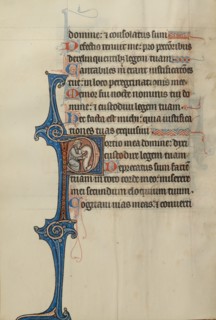 domine: & consolatus sum
Defectio tenuit me: pro peccatoribus
derelinquentibus legem tuam
Cantabiles m erant iustificatões
tue: in loco peregrinationis mee
Memor fui nocte nominis tui do
mine: & custodiui legem tuam
Hec facta est michi: quia iustifica
tiones tuas exquisiui
Portio mea domine: dixi
custodire legem tuam
Deprecatus sum faciē
tuam in toto corde meo: miserere
mei secundum eloquium tuum
Cogitaui uias meas: & conuerti